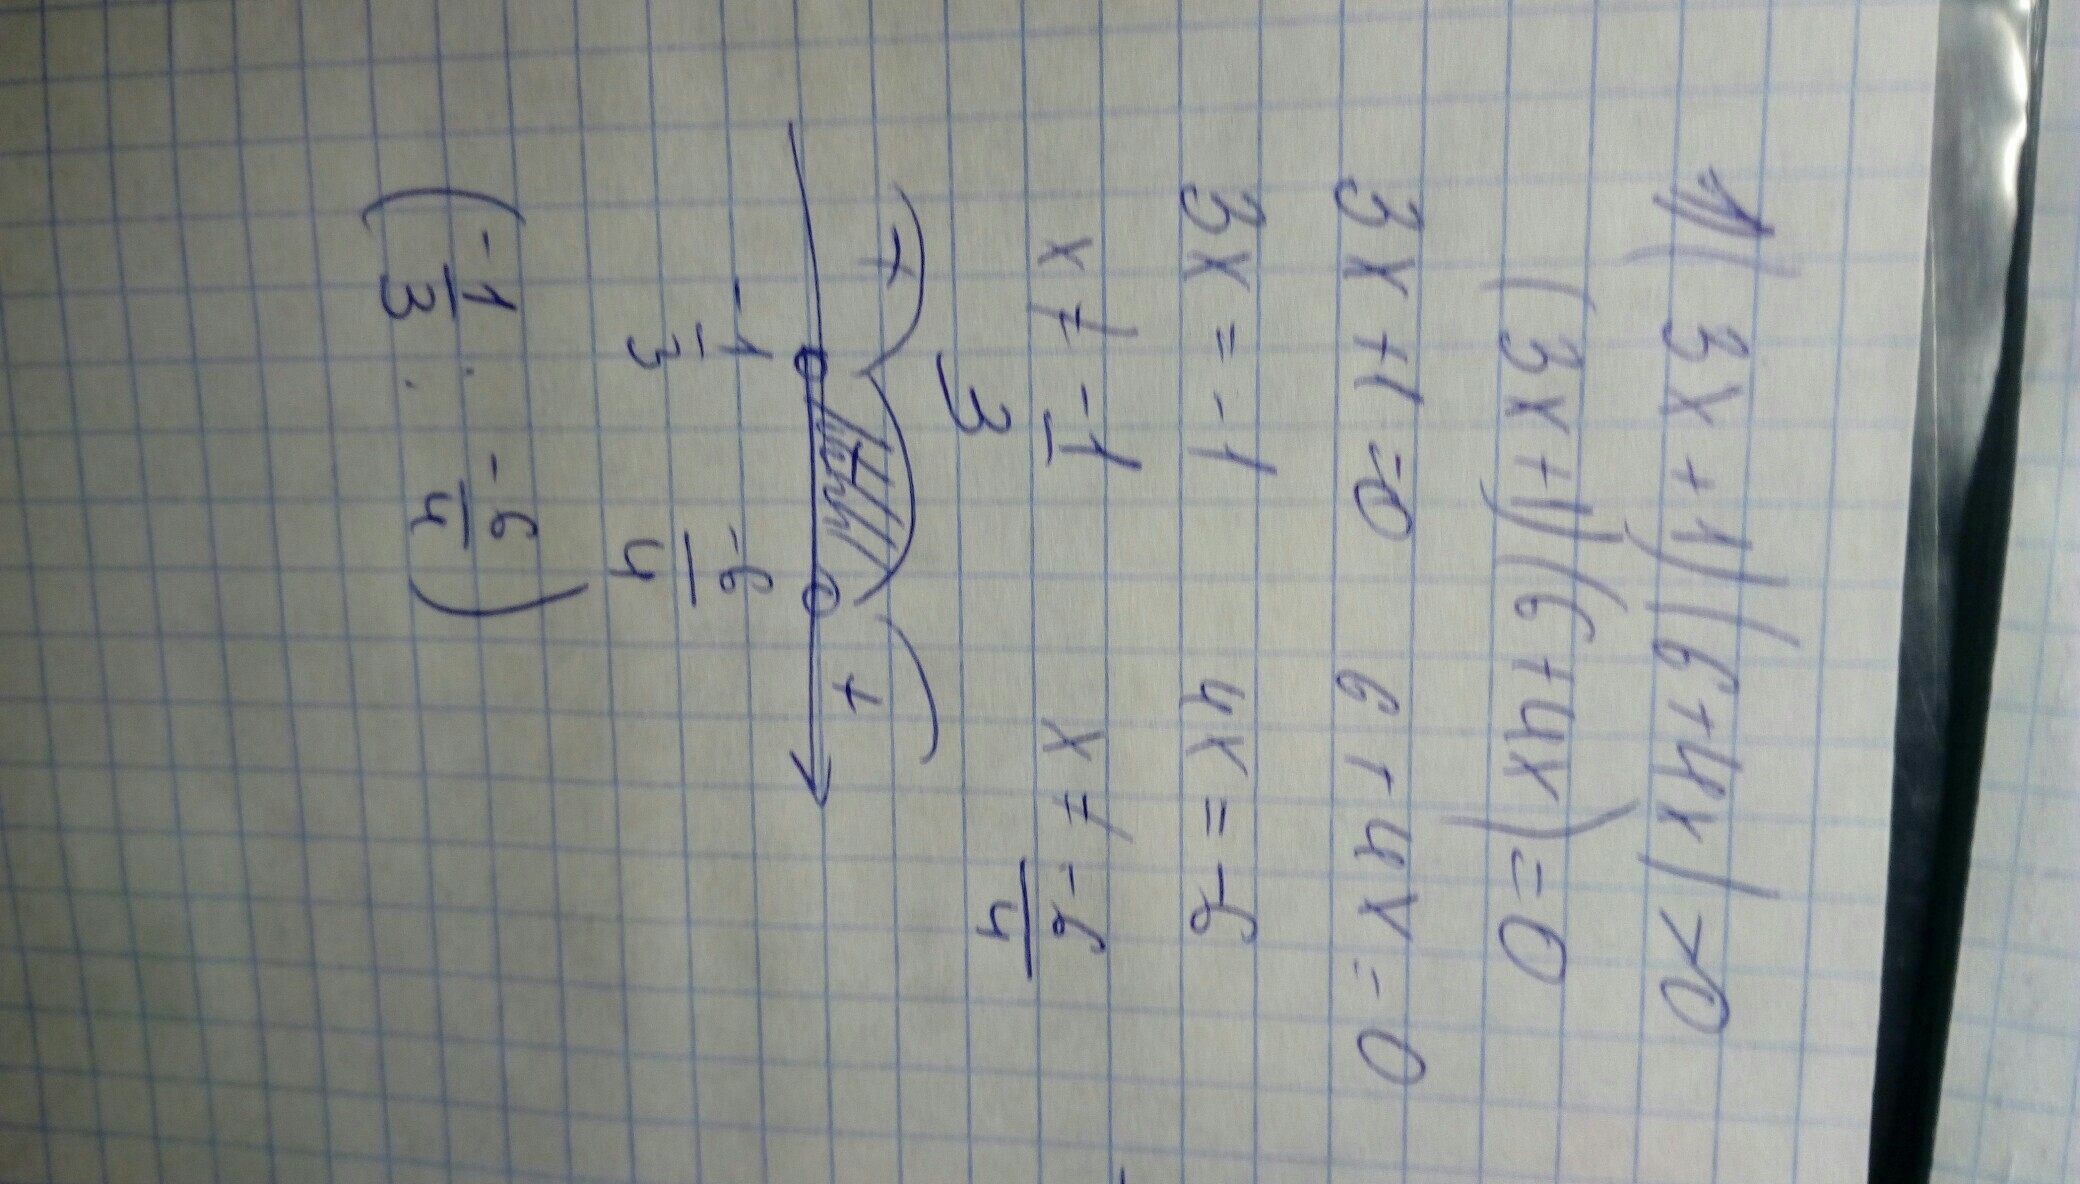 1) (3x+1)(6+4x)>0
(3x+1)(6+4x)=0
3x+1=0 6+4x=0
3x=-1 4x=-6
x≠-1/3 x≠-6/4
+ - +
-1/3 -6/4
(-1/3; -6/4)